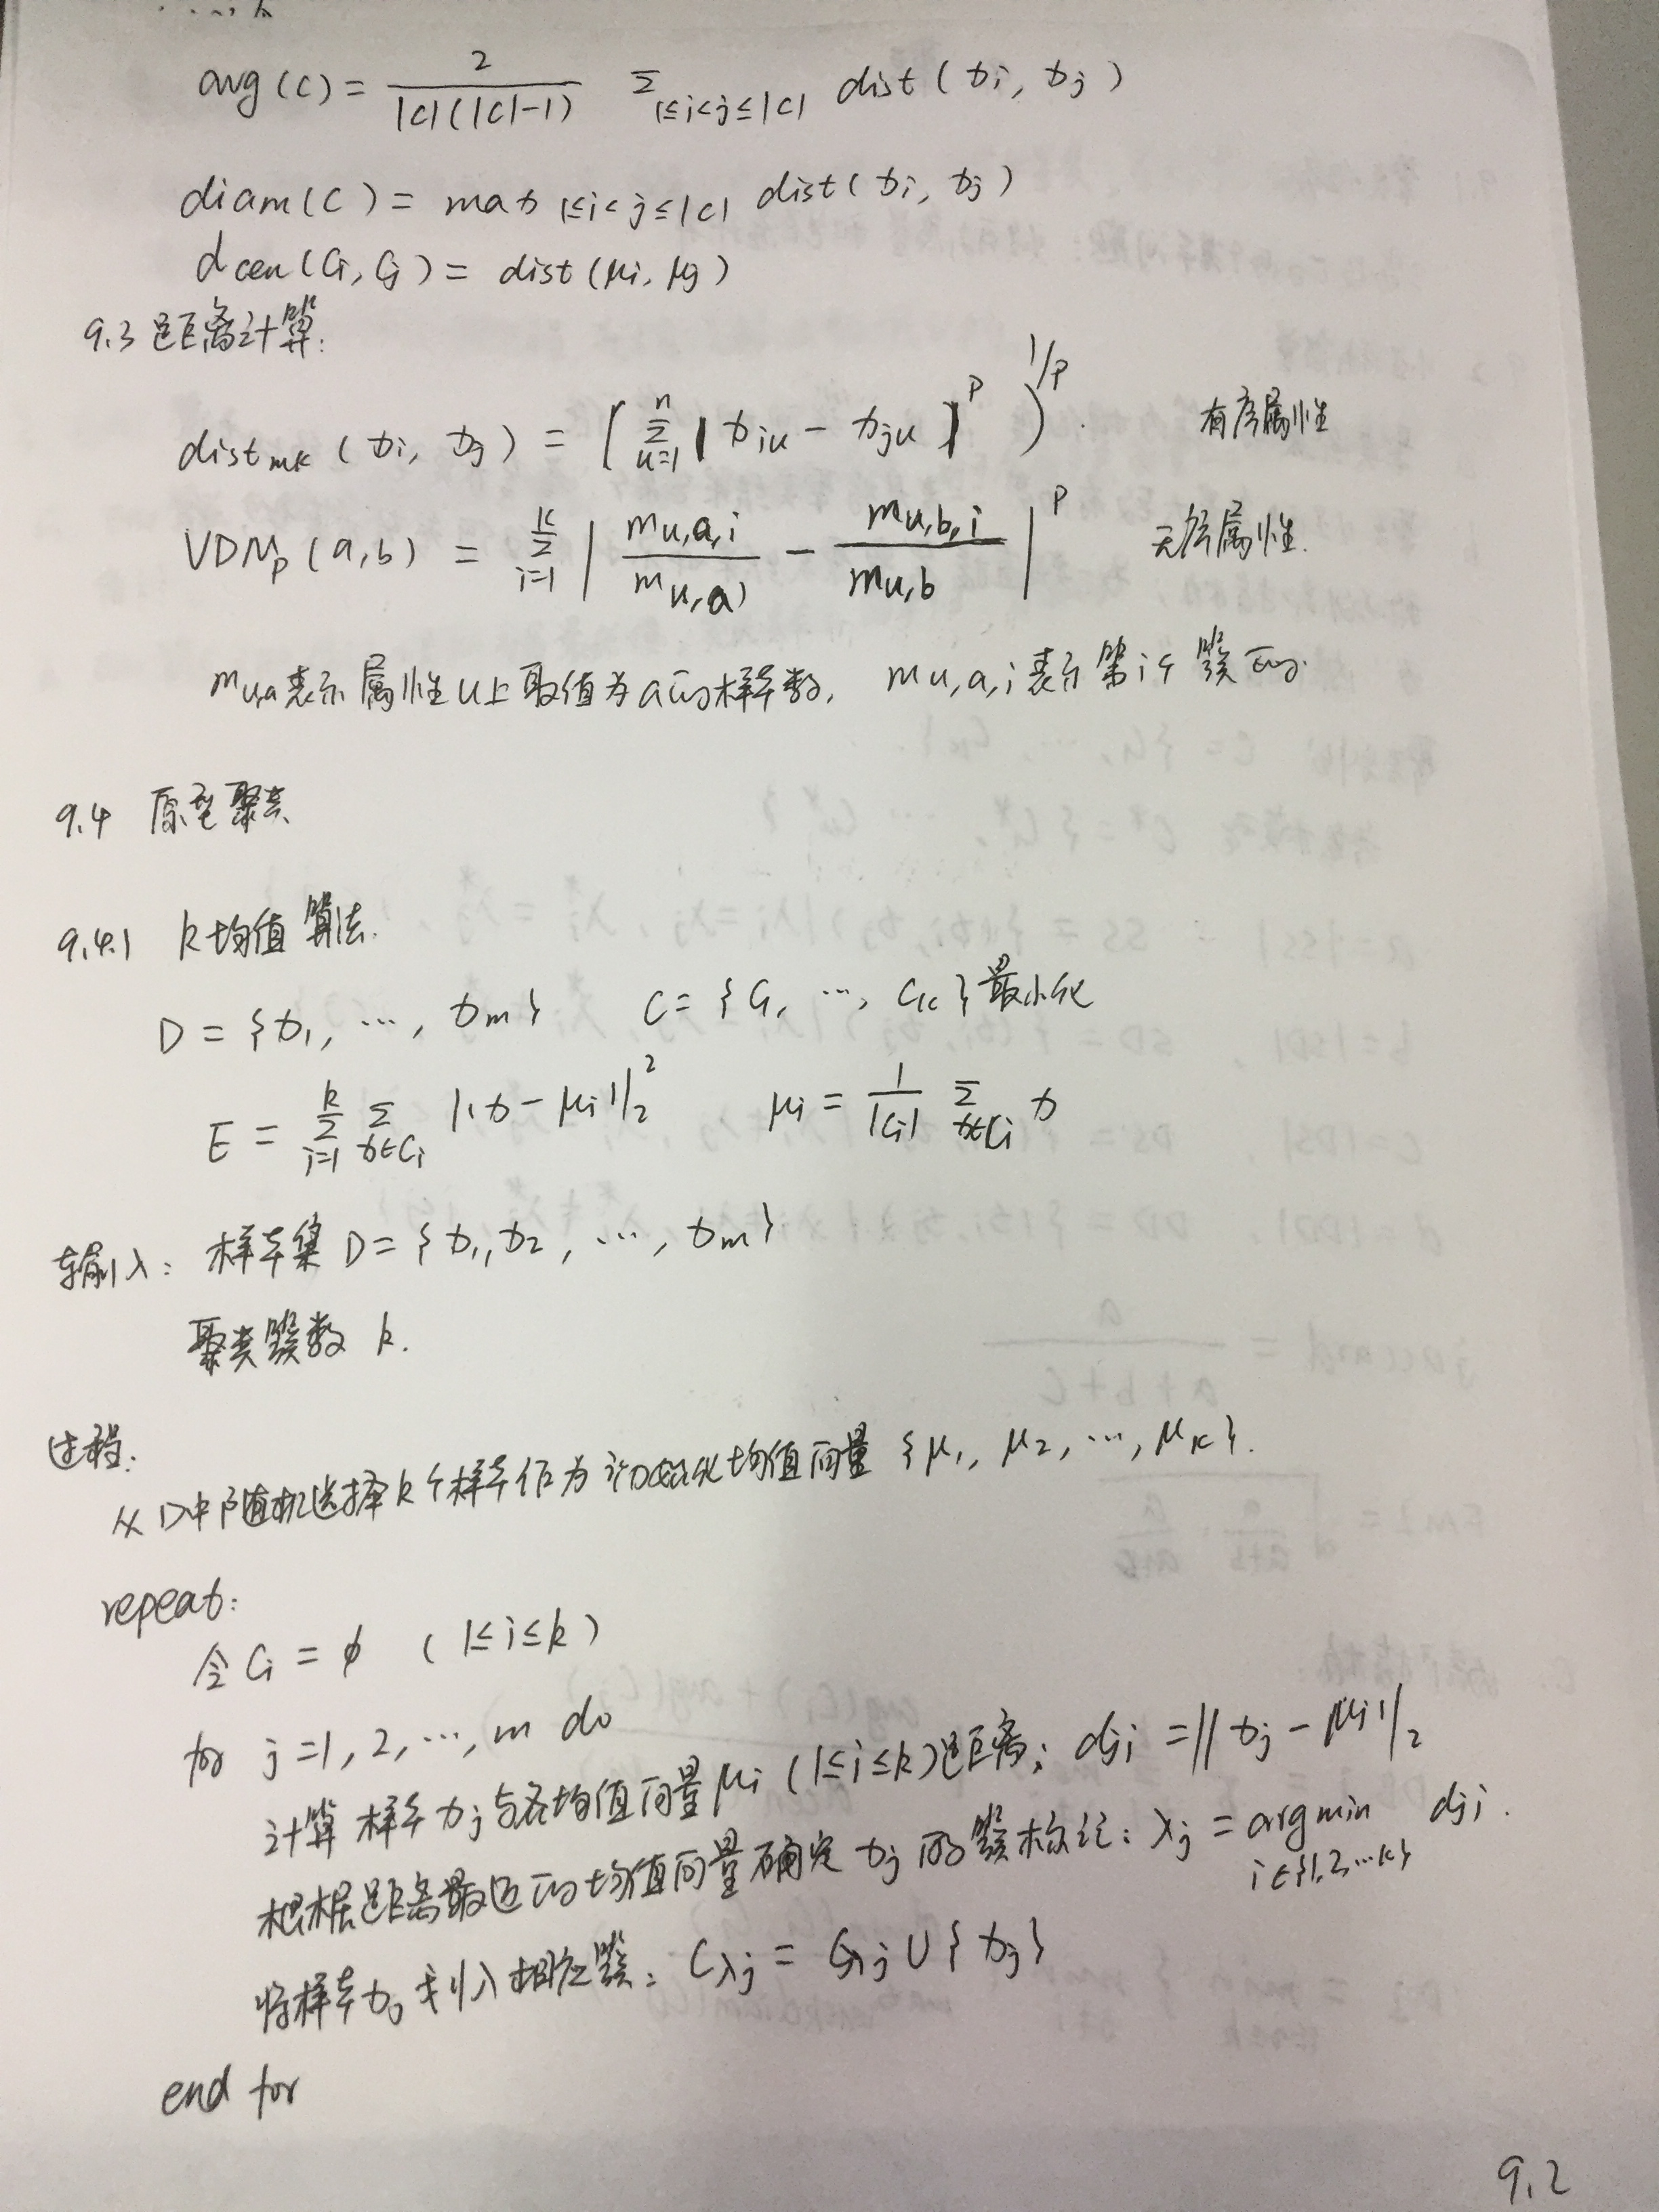 avg(C) = 2/(|C|(|C|-1)) Σ 1≤i<j≤|C| dist(xi, xj)
diam(C) = max 1≤i<j≤|C| dist(xi, xj)
dcen(Ci, Cj) = dist(μi, μj)
9.3 距离计算:
distmk(xi, xj) = [Σ u=1 n |xiu - xju|^p)^1/p. 有序属性
VDMp(a,b) = Σ i=1 k |mu,a,i/mu,a) - mu,b,i/mu,b|^p 无序属性.
mu,a表示属性u上取值为a的样本数, mu,a,i表示第i个簇的.
9.4 原型聚类
9.4.1 k均值算法.
D = {x1, ..., xm} C = {C1, ..., Ck}最小化
E = Σ i=1 k Σ x∈Ci ||x - μi||2^2 μi = 1/|Ci| Σ x∈Ci x
输入: 样本集 D = {x1, x2, ..., xm}
聚类簇数 k.
过程:
从D中随机选择k个样本作为初始化均值向量 {μ1, μ2, ..., μk}.
repeat:
令 Ci = ϕ (1≤i≤k)
for j=1, 2, ..., m do
计算样本xj与各均值向量μi (1≤i≤k)距离: dji = ||xj - μi||2
根据距离最近的均值向量确定xj的簇标记: λj = argmin i∈{1,2...k} dji.
将样本xj划入相应簇: Cλj = Cλj ∪ {xj}
end for
9.2